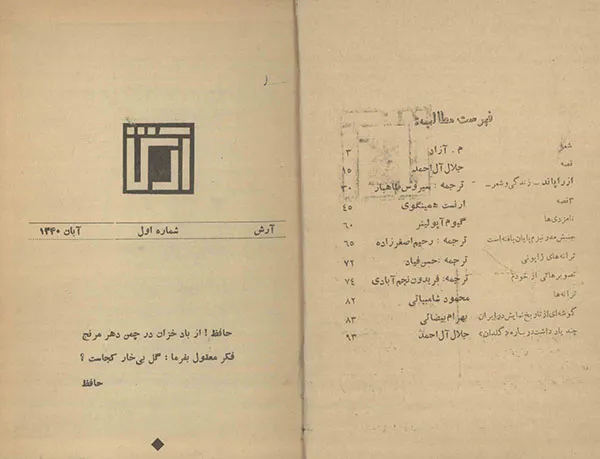 فهرست مطالب:
شعر م. آزاد ۳
قصه جلال آل احمد ۱۵
ازراپاند - زندگی و شعر - ترجمه: سیروس طاهباز ۳۰
۳ قصه ارنست همینگوی ۴۵
نامزدی‌ها گیوم آپولینر ۶۰
جنبش مدرنیزم پایان یافته است ترجمه: رحیم اصغرزاده ۶۵
ترانه‌های ژاپونی ترجمه: حسن فیاد ۷۲
تصویرهائی از خودم ترجمه: فریدون نجم‌آبادی ۷۴
ترانه‌ها محمود شامبیاتی ۸۲
گوشه‌ای از تاریخ نمایش در ایران بهرام بیضائی ۸۳
چند یادداشت درباره «گلدان» جلال آل احمد ۹۳
آرش شماره اول آبان ۱۳۴۰
حافظ! از باد خزان در چمن دهر مرنج
فکر معقول بفرما: گل بی‌خار کجاست؟
حافظ